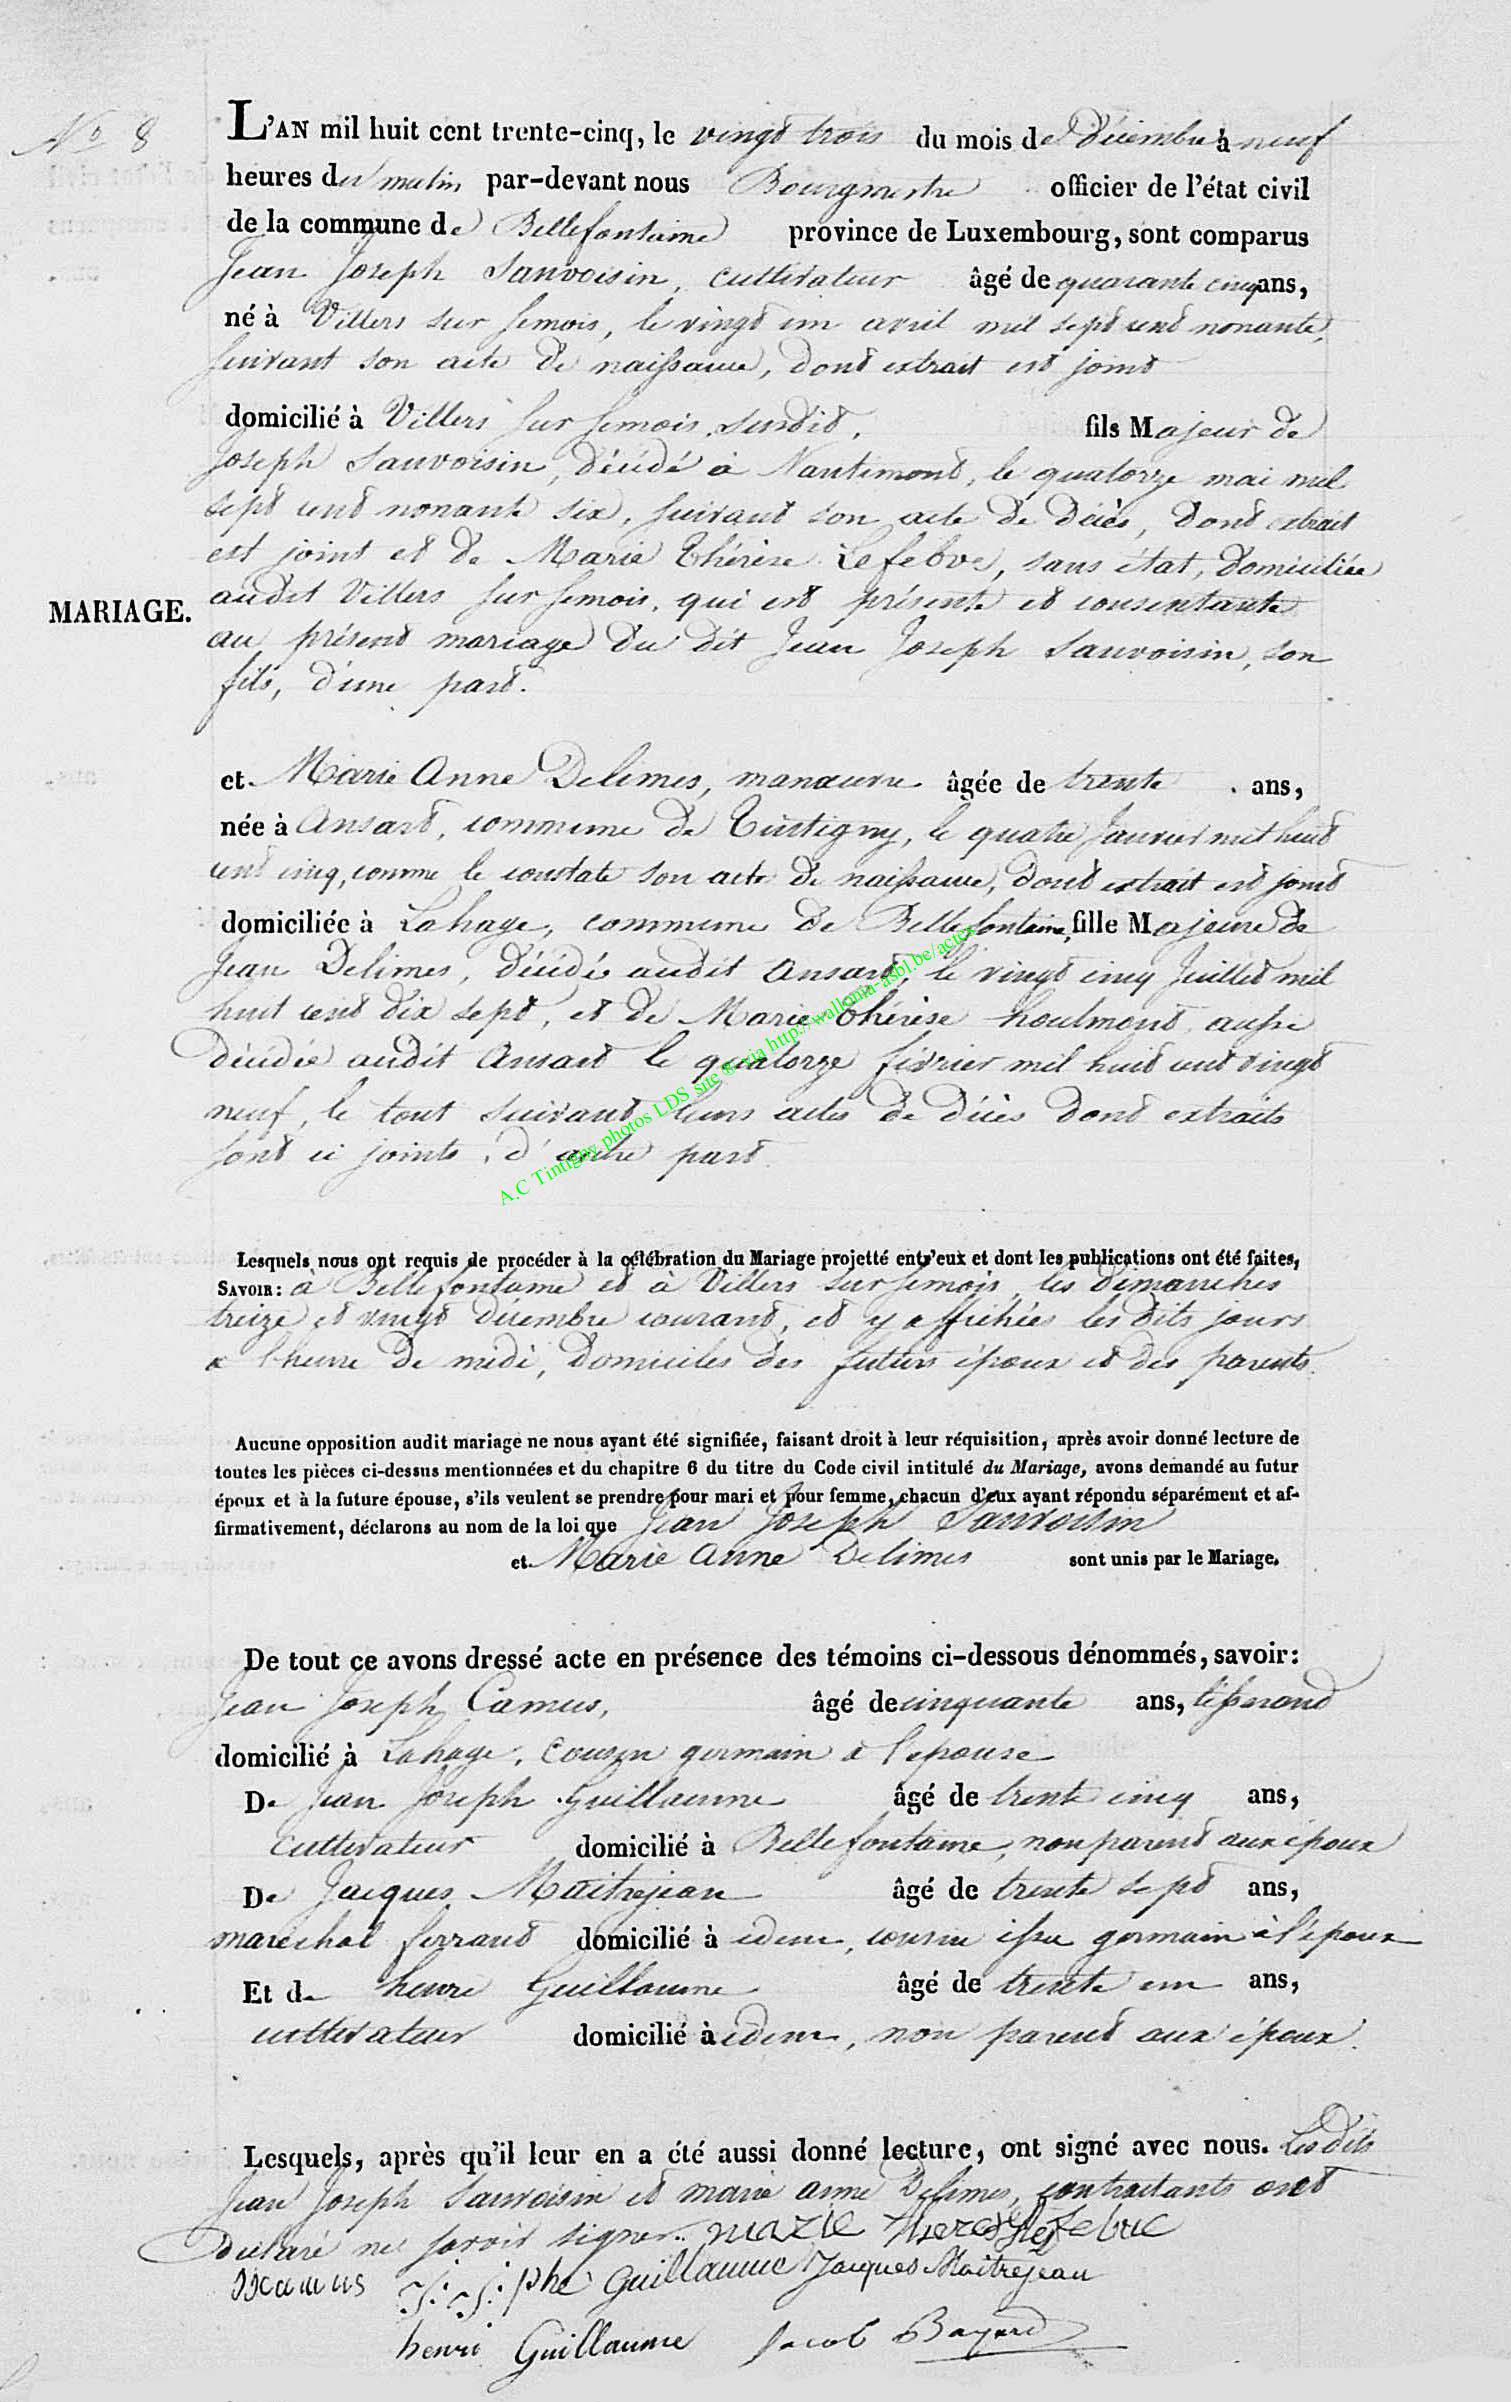 No 8
L'AN mil huit cent trente-cinq, le vingt trois du mois de Décembre à neuf
heures du matin par-devant nous Bourgmestre officier de l'état civil
de la commune de Bellefontaine province de Luxembourg, sont comparus
Jean Joseph Sauvoisin, cultivateur âgé de quarante cinq ans,
né à Villers sur Semois, le vingt un avril mil sept cent nonante,
suivant son acte de naissance, dont extrait est joint
domicilié à Villers sur Semois, susdit, fils Majeur de
Joseph Sauvoisin, décédé à Nantimont, le quatorze mai mil
sept cent nonante six, suivant son acte de décès, dont extrait
est joint et de Marie Thérèse Lefebve, sans état, domiciliée
audit Villers sur Semois, qui est présente et consentante
MARIAGE.
au présent mariage du dit Jean Joseph Sauvoisin, son
fils, d'une part.
et Marie Anne Delimes, manœuvre âgée de trente ans,
née à Ansart, commune de Tintigny, le quatre Janvier mil huit
cent cinq, comme le constate son acte de naissance, dont extrait est joint
domiciliée à Lahage, commune de Bellefontaine, fille Majeure de
Jean Delimes, décédé audit Ansart, le vingt cinq Juillet mil
huit cent dix sept, et de Marie Thérèse houlmont aussi
décédée audit Ansart le quatorze février mil huit cent vingt
neuf, le tout suivant leurs actes de décès dont extraits
sont ci joints, d'autre part.
A.C Tintigny photos LDS site ® via http://wallonia-asbl.be/actes
Lesquels nous ont requis de procéder à la célébration du Mariage projetté entr'eux et dont les publications ont été faites,
SAVOIR: à Bellefontaine et à Villers sur Semois, les dimanches
treize et vingt décembre courant, et y affichées les dits jours
a l'heure de midi, domiciles des futurs époux et des parents.
Aucune opposition audit mariage ne nous ayant été signifiée, faisant droit à leur réquisition, après avoir donné lecture de
toutes les pièces ci-dessus mentionnées et du chapitre 6 du titre du Code civil intitulé du Mariage, avons demandé au futur
époux et à la future épouse, s'ils veulent se prendre pour mari et pour femme, chacun d'eux ayant répondu séparément et af-
firmativement, déclarons au nom de la loi que Jean Joseph Sauvoisin
et Marie Anne Delimes sont unis par le Mariage.
De tout ce avons dressé acte en présence des témoins ci-dessous dénommés, savoir:
Jean Joseph Camus, âgé de cinquante ans, tisserand
domicilié à Lahage, cousin germain à l'epouse
De Jean Joseph Guillaume âgé de trente cinq ans,
cultivateur domicilié à Bellefontaine, non parent aux époux
De Jacques Maitrejean âgé de trente sept ans,
maréchal ferrant domicilié à idem, cousin issu germain à l'époux
Et de henri Guillaume âgé de trente un ans,
cultivateur domicilié à idem, non parent aux époux.
Lesquels, après qu'il leur en a été aussi donné lecture, ont signé avec nous. Les dits
Jean Joseph Sauvoisin et marie anne Delimes, contractants ont
déclaré ne savoir signer. marie therese Lefebve
JJ camus J. J. phe Guillaume Jacques Maitrejean
henri Guillaume Jacob Bayard